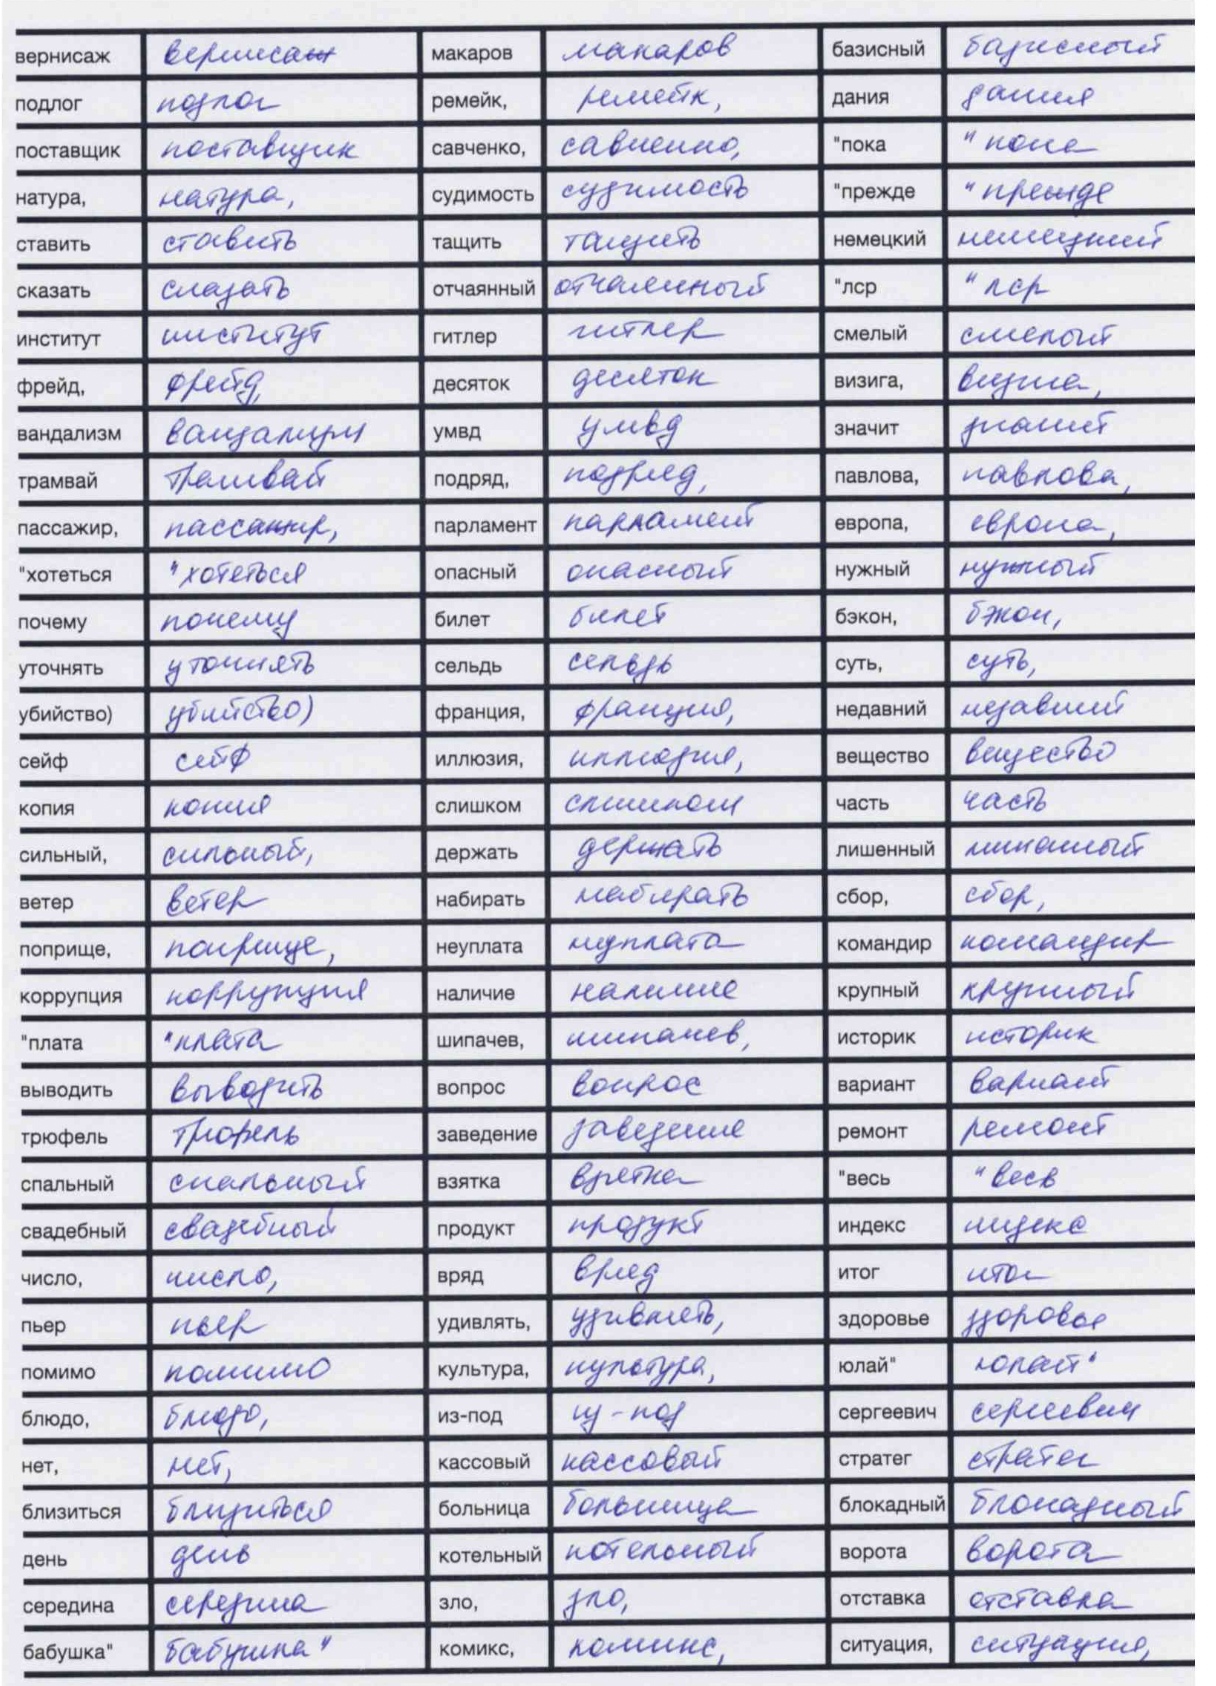 вернисаж вернисаж макаров макаров базисный базисный
подлог подлог ремейк, ремейк, дания дания
поставщик поставщик савченко, савченко, "пока "пока
натура, натура, судимость судимость "прежде "прежде
ставить ставить тащить тащить немецкий немецкий
сказать сказать отчаянный отчаянный "лср "лср
институт институт гитлер гитлер смелый смелый
фрейд, фрейд, десяток десяток визига, визига,
вандализм вандализм умвд умвд значит значит
трамвай трамвай подряд, подряд, павлова, павлова,
пассажир, пассажир, парламент парламент европа, европа,
"хотеться "хотеться опасный опасный нужный нужный
почему почему билет билет бэкон, бэкон,
уточнять уточнять сельдь сельдь суть, суть,
убийство) убийство) франция, франция, недавний недавний
сейф сейф иллюзия, иллюзия, вещество вещество
копия копия слишком слишком часть часть
сильный, сильный, держать держать лишенный лишенный
ветер ветер набирать набирать сбор, сбор,
поприще, поприще, неуплата неуплата командир командир
коррупция коррупция наличие наличие крупный крупный
"плата "плата шипачев, шипачев, историк историк
выводить выводить вопрос вопрос вариант вариант
трюфель трюфель заведение заведение ремонт ремонт
спальный спальный взятка взятка "весь "весь
свадебный свадебный продукт продукт индекс индекс
число, число, вряд вряд итог итог
пьер пьер удивлять, удивлять, здоровье здоровье
помимо помимо культура, культура, юлай" юлай"
блюдо, блюдо, из-под из-под сергеевич сергеевич
нет, нет, кассовый кассовый стратег стратег
близиться близиться больница больница блокадный блокадный
день день котельный котельный ворота ворота
середина середина зло, зло, отставка отставка
бабушка" бабушка" комикс, комикс, ситуация, ситуация,